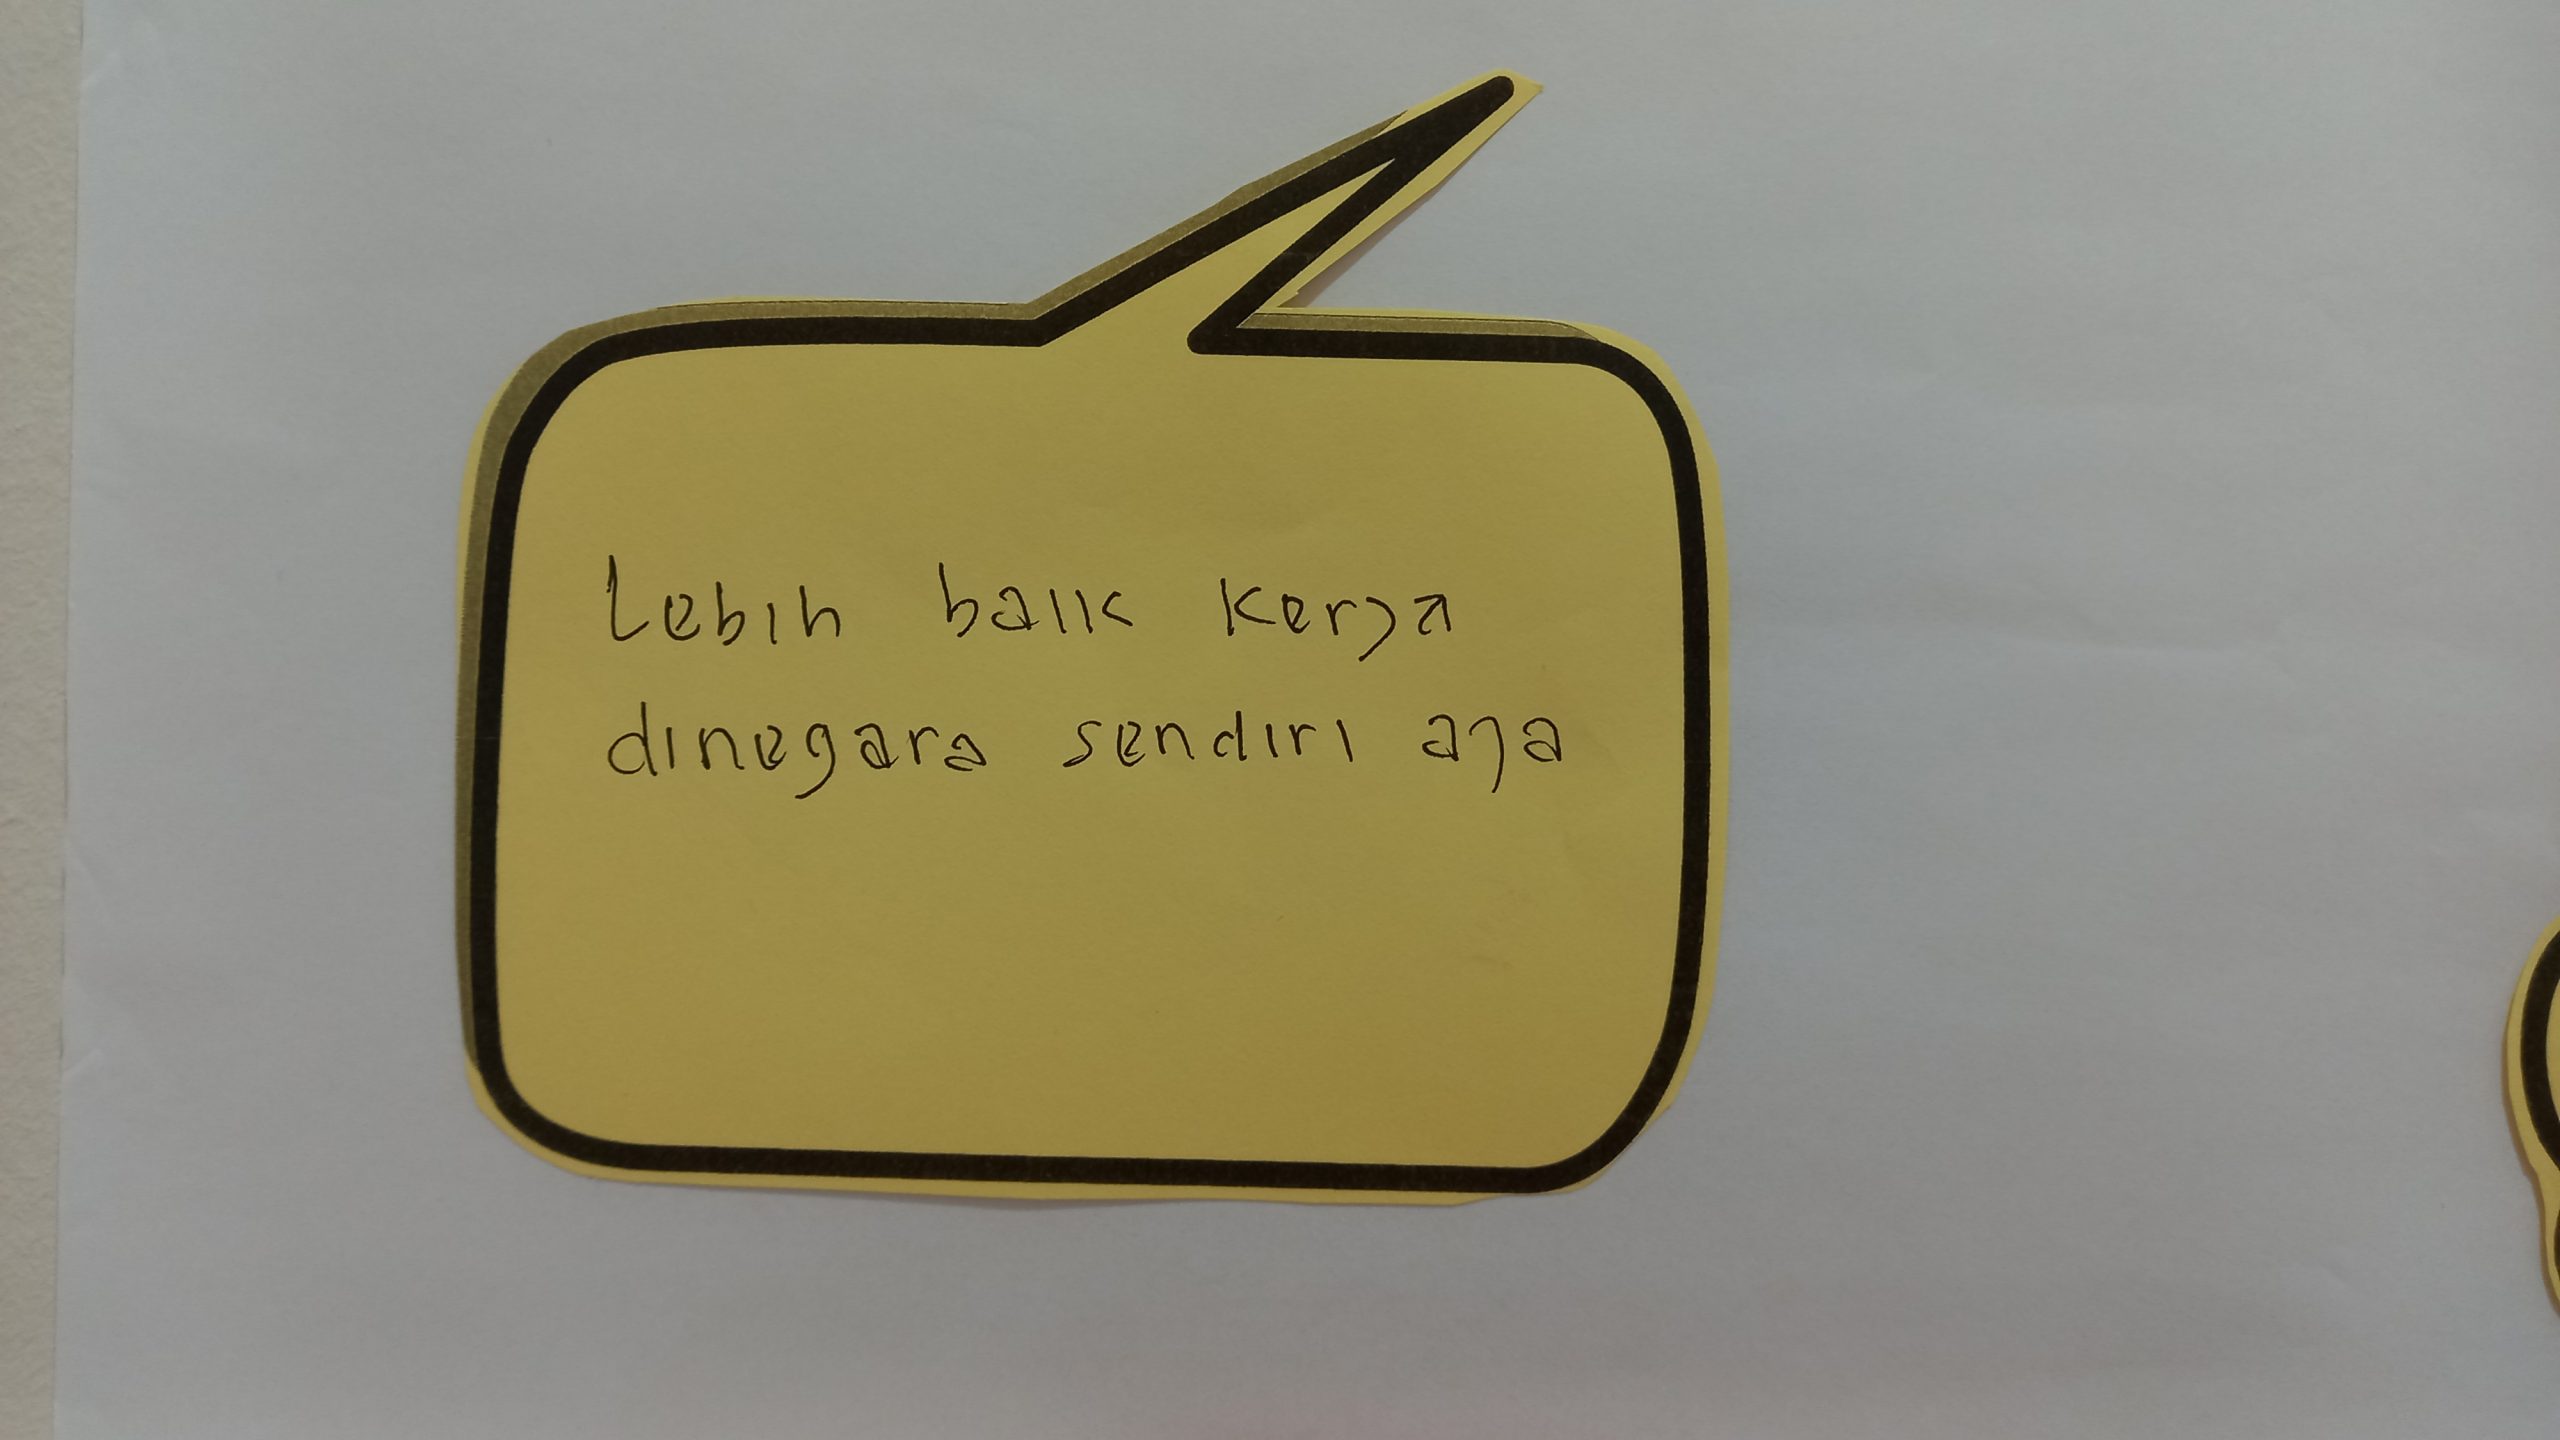 Lebih baik kerja
dinegara sendiri aja